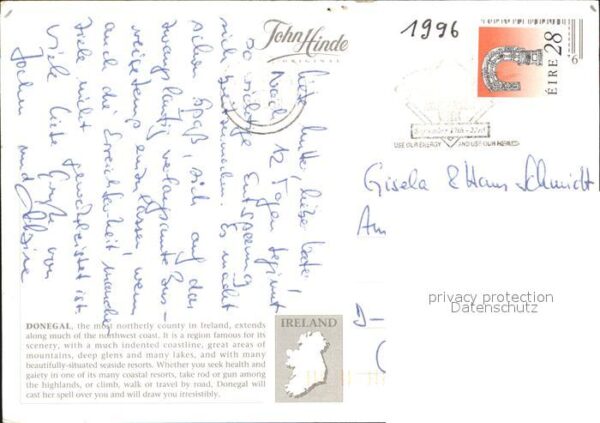 John Hinde
ORIGINAL
1996
ÉIRE 28
USE OUR ENERGY AND USE OUR
Gisela & Hans Schmidt
Am
D-
privacy protection
Datenschutz
Liebe Mutter, lieber Vater!
Nach 12 Tagen beginnt
so richtige Entspannung
sich breitzumachen. Es macht
schon Spaß, sich auf das
zwangsläufig verlangsamte Rei-
setempo einzulassen, wenn
auch die Erreichbarkeit mancher
Ziele nicht gewährleistet ist.
Viele liebe Grüße von
Jochen und
DONEGAL, the most northerly county in Ireland, extends
along much of the northwest coast. It is a region famous for its
scenery, with a much indented coastline, great areas of
mountains, deep glens and many lakes, and with many
beautifully-situated seaside resorts. Whether you seek health and
gaiety in one of its many coastal resorts, take rod or gun among
the highlands, or climb, walk or travel by road, Donegal will
cast her spell over you and will draw you irresistibly.
IRELAND